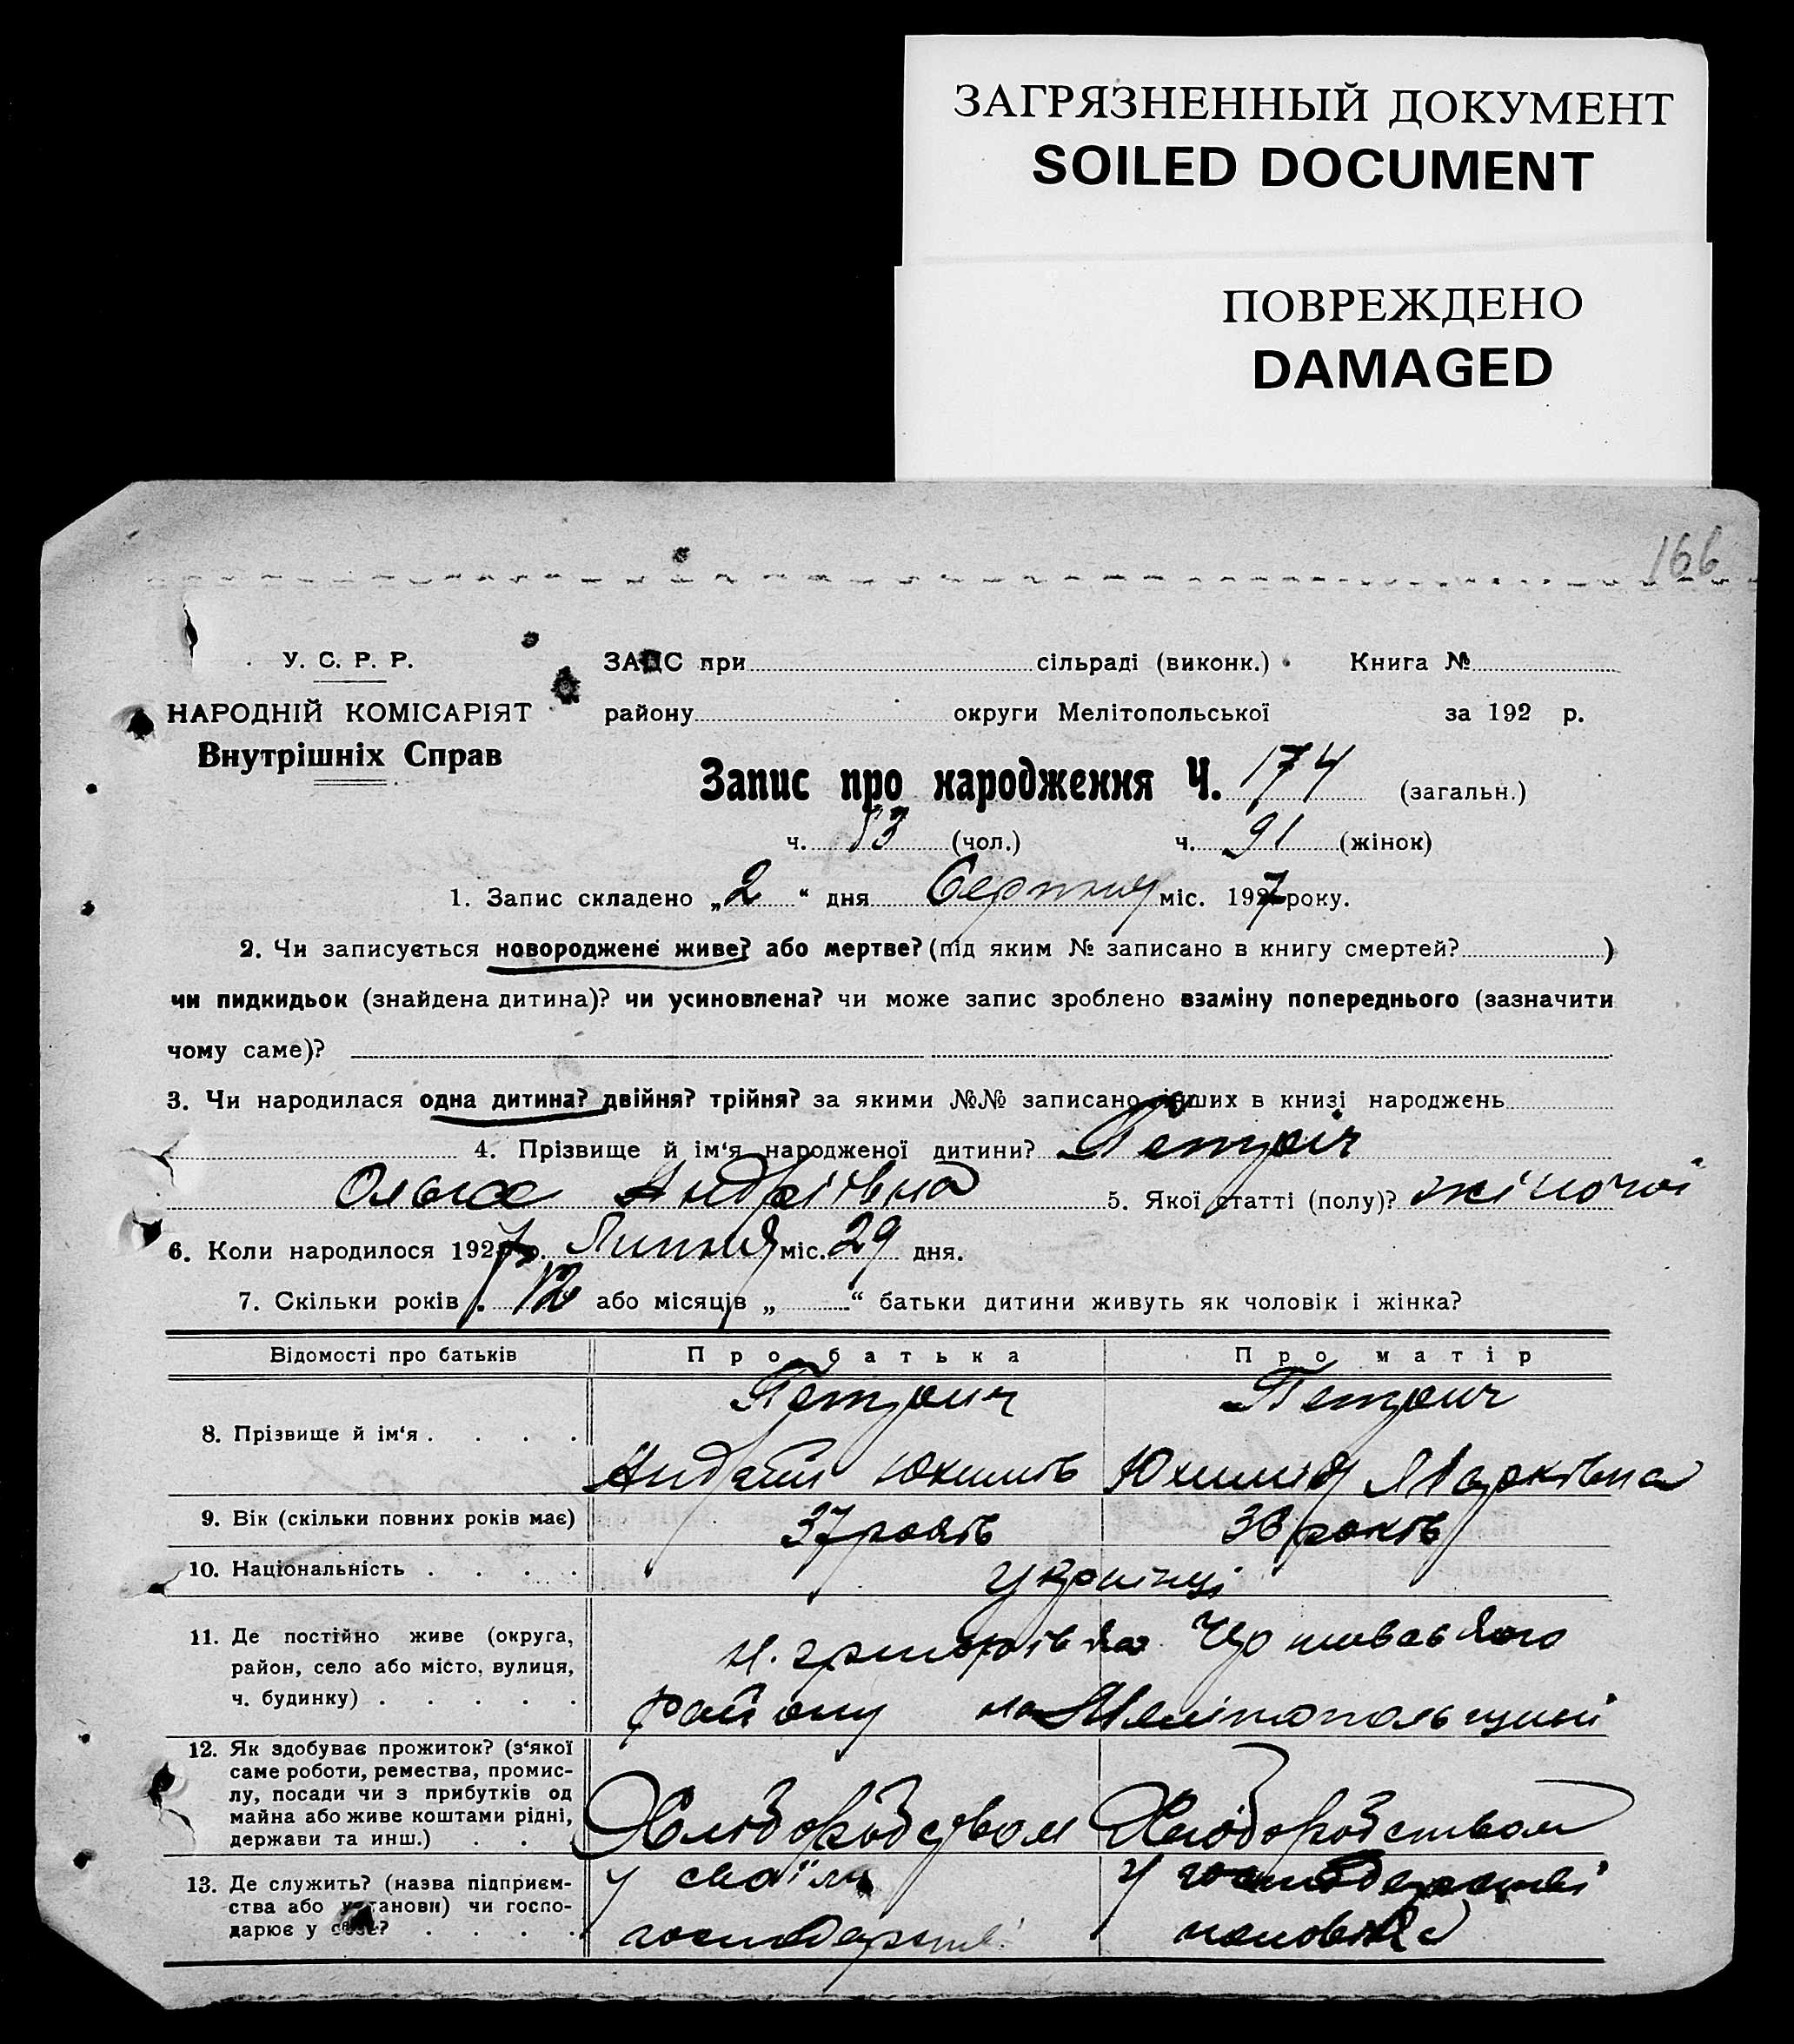 ЗАГРЯЗНЕННЫЙ ДОКУМЕНТ
SOILED DOCUMENT
ПОВРЕЖДЕНО
DAMAGED
166
У. С. Р. Р.
НАРОДНІЙ КОМІСАРІЯТ
Внутрішніх Справ
ЗАГС при сільраді (виконк.) Книга №
району округи Мелітопольської за 192 р.
Запис про народження Ч. 174 (загальн.)
ч. 83 (чол.) ч. 91 (жінок)
1. Запис складено „2“ дня Серпня міс. 1927 року.
2. Чи записується новороджене живе? або мертве? (під яким № записано в книгу смертей? )
чи пидкидьок (знайдена дитина)? чи усиновлена? чи може запис зроблено взаміну попереднього (зазначити
чому саме)?
3. Чи народилася одна дитина? двійня? трійня? за якими №№ записано інших в книзі народжень
4. Прізвище й ім‘я народженої дитини? Петріч
Ольга Андріївна 5. Якої статті (полу)? жіночої
6. Коли народилося 1927 р. Липня міс. 29 дня.
7. Скільки років 12 або місяців „ “ батьки дитини живуть як чоловік і жінка?
Відомості про батьків Про батька Про матір
8. Прізвище й ім‘я . . . . Петрич Петрич
Андрій Юхимів Юхимія Марківна
9. Вік (скільки повних років має) 37 років 36 років
10. Національність . . . . українці
11. Де постійно живе (округа,
район, село або місто, вулиця,
ч. будинку) . . . . .
н. григорівка
району на Мелітопольщині
12. Як здобуває прожиток? (з‘якої
саме роботи, ремества, промис-
лу, посади чи з прибутків од
майна або живе коштами рідні,
держави та инш.) . . .
Хліборобством Хліборобством
13. Де служить? (назва підприєм-
ства або установи) чи госпо-
дарює у себе? . . . .
у своїм у господарстві
господарстві чоловіка